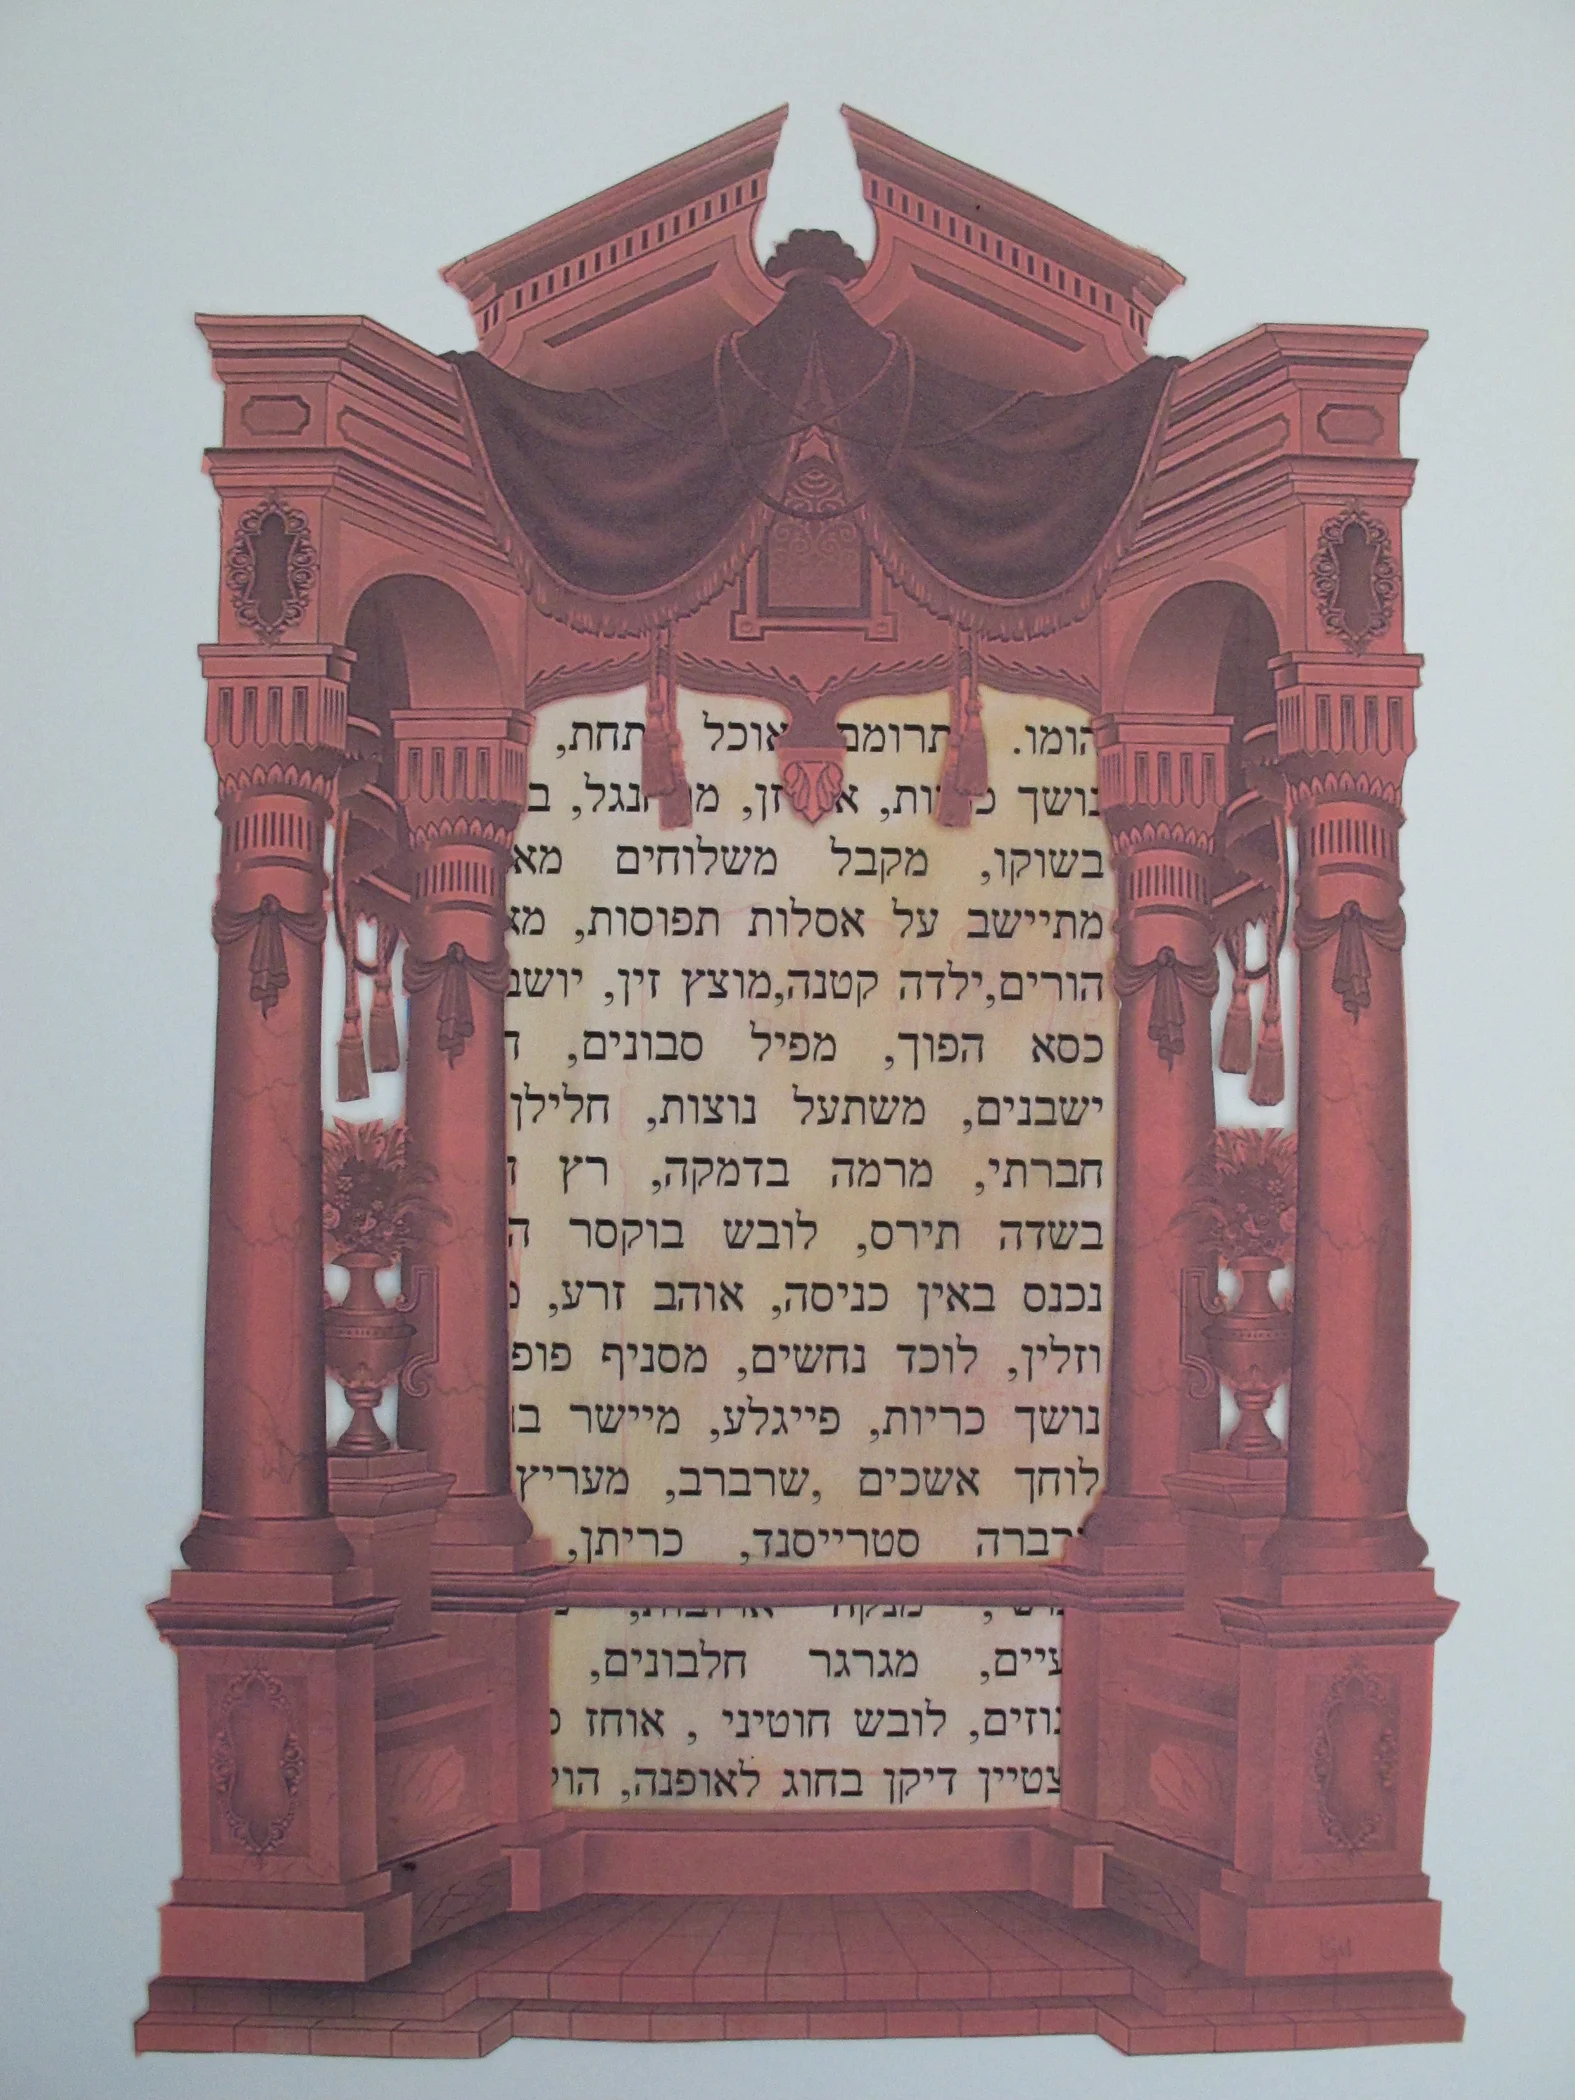 הומו. תרומם אוכל תחת,
נושך ות, זן, נגל, ב
בשוקו, מקבל משלוחים מא
מתיישב על אסלות תפוסות, מא
הורים,ילדה קטנה,מוצץ זין, יושב
כסא הפוך, מפיל סבונים, ד
ישבנים, משתעל נוצות, חלילן
חברתי, מרמה בדמקה, רץ
בשדה תירס, לובש בוקסר ה
נכנס באין כניסה, אוהב זרע,
וזלין, לוכד נחשים, מסניף פופ
נושך כריות, פייגלע, מיישר
לוחך אשכים ,שרברב, מעריץ
רברה סטרייסנד, כריתן,
מנקה ארובות,
עיים, מגרגר חלבונים,
נוזים, לובש חוטיני , אוחז
צטיין דיקן בחוג לאופנה, הוי